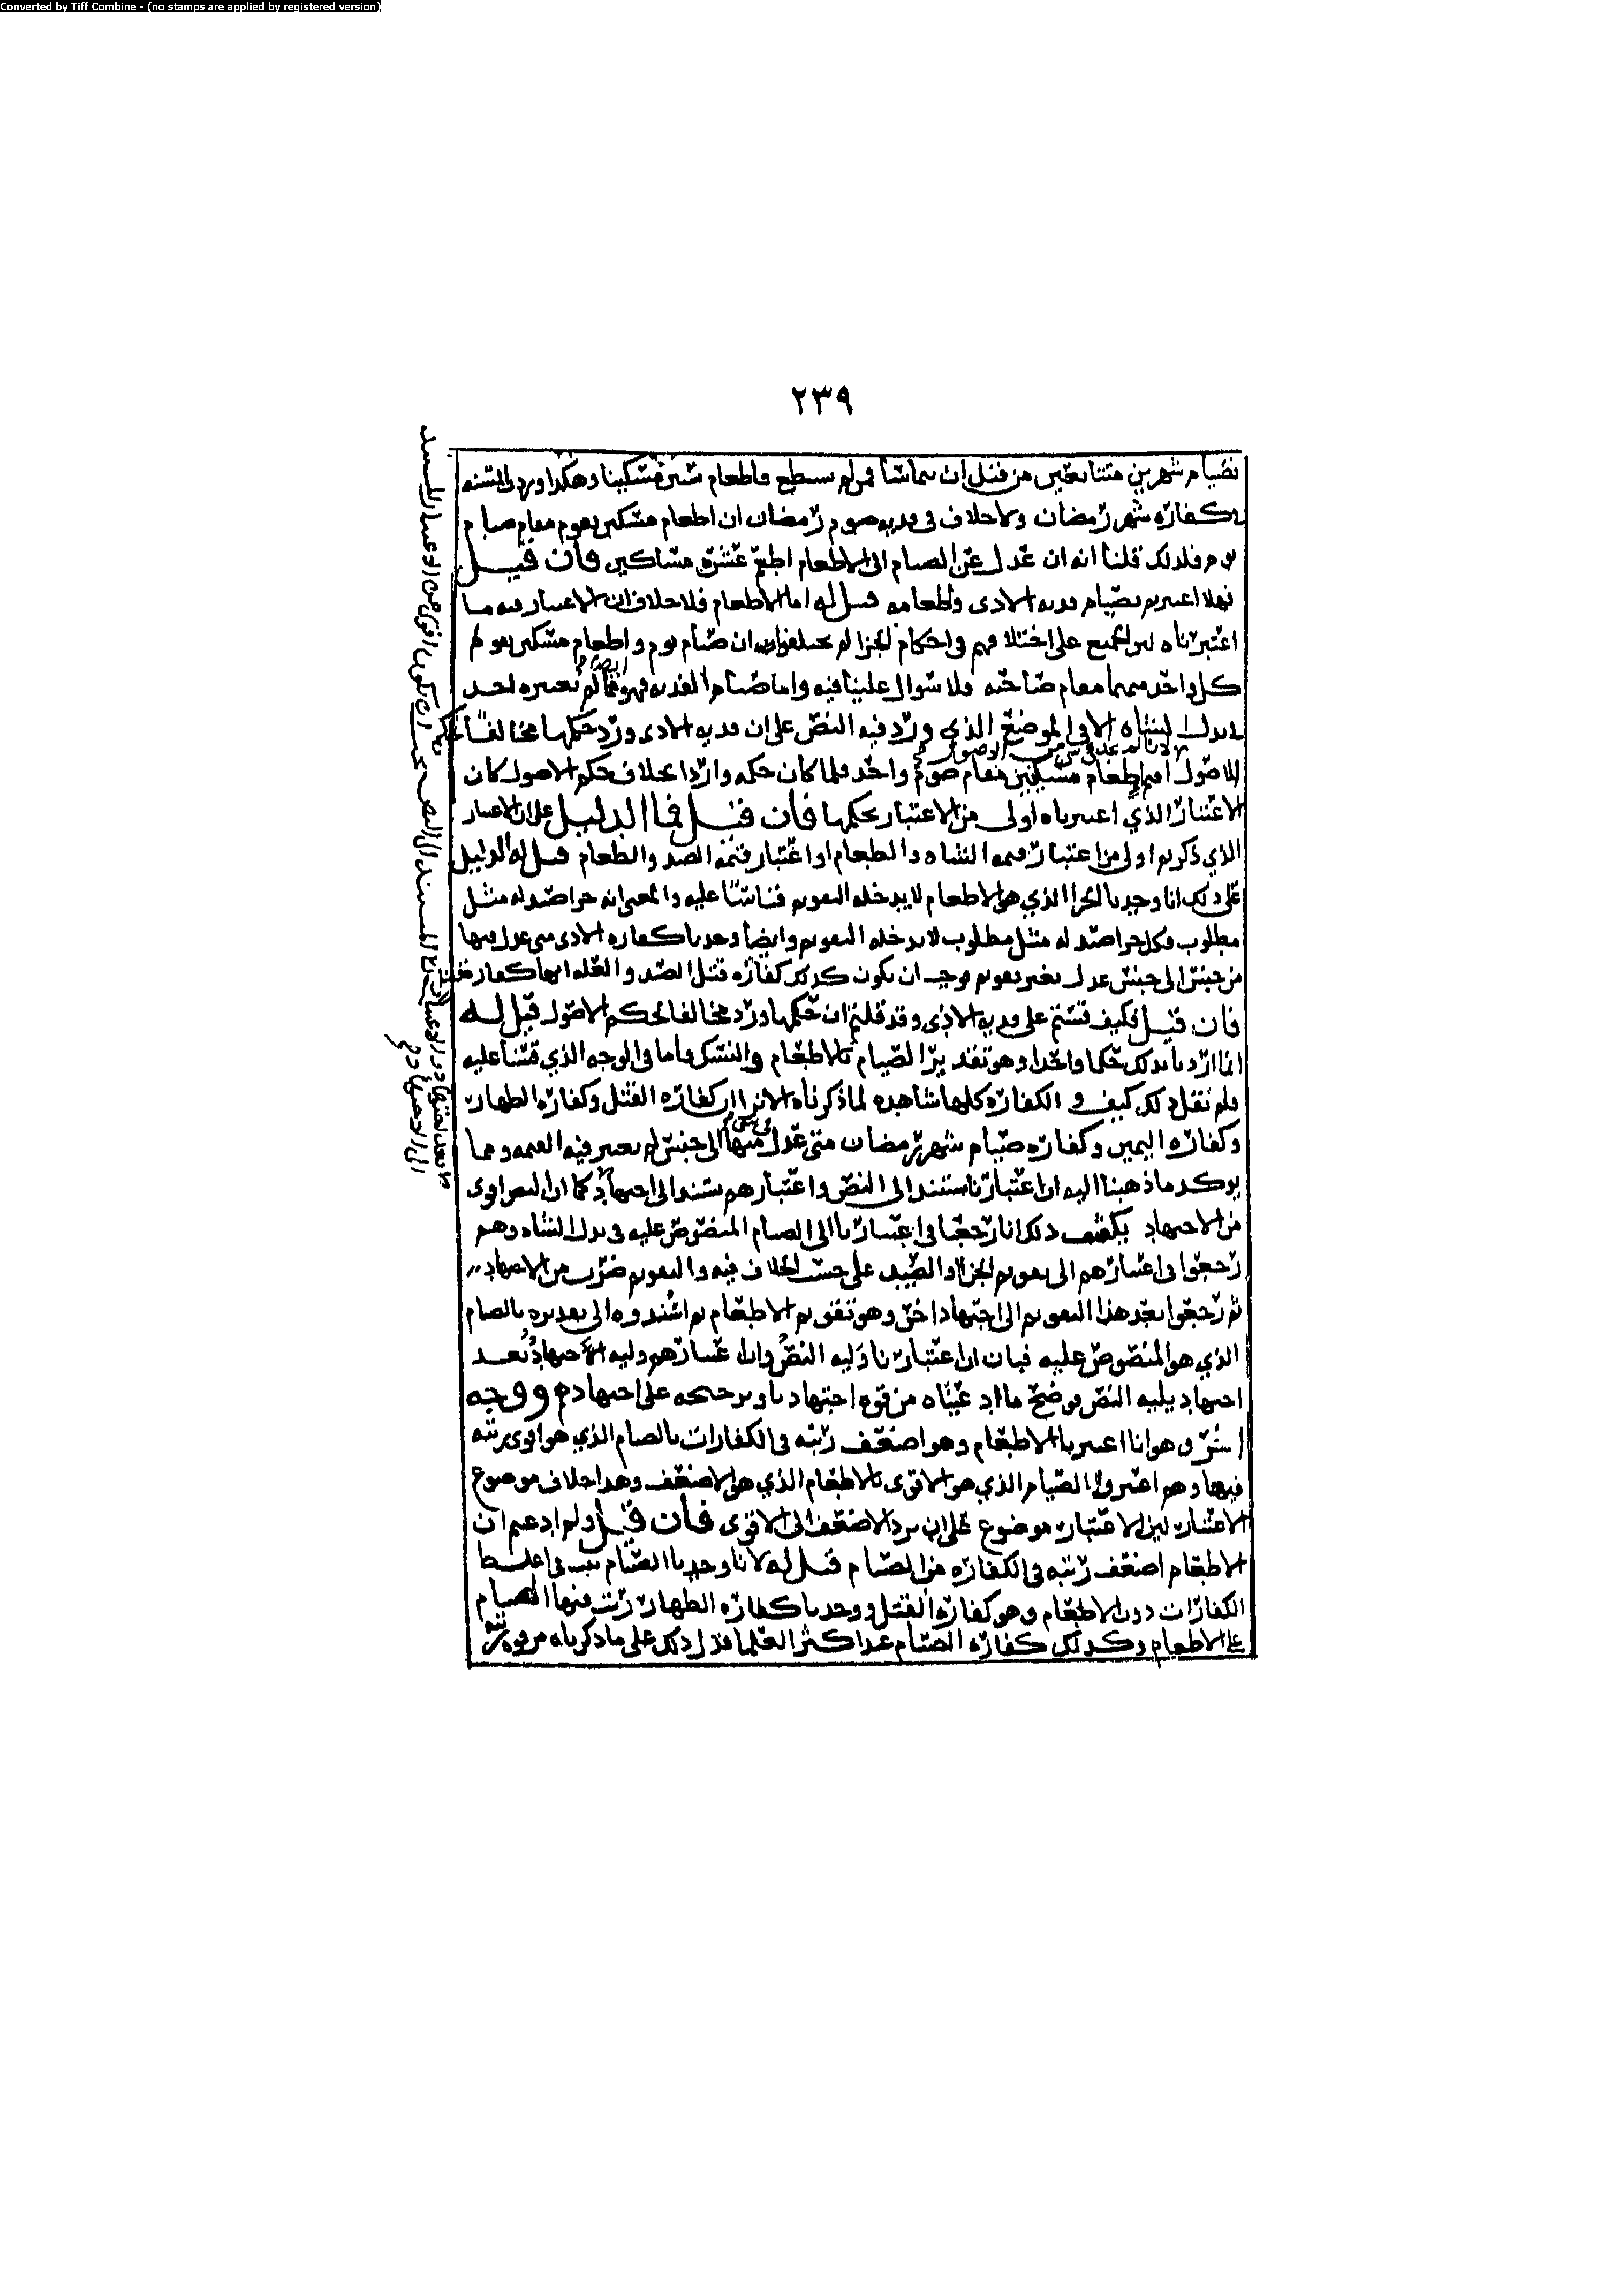 Converted by Tiff Combine - (no stamps are applied by registered version)
٢٣٩
فصيام شهرين متتابعين من قبل ان يتماسا فمن لم يستطع فاطعام ستين مسكينا وهكذا وردت السنه
بكفارة شهر رمضان ولا خلاف في فديه صوم رمضان ان اطعام مسكين يقوم مقام صيام
يوم فلذلك قلنا انه ان عدل عن الصيام الى الاطعام اطعم عشرة مساكين فان قيل
فهلا اعتبرتم بصيام فديه الاذى واطعامه قيل له اما الاطعام فلا خلاف ان الاعتبار فيه ما
اعتبرناه لان الجميع على اختلافهم في احكام الجزا لم يختلفوا ان صيام يوم واطعام مسكين يقوم
كل واحد منهما مقام صاحبه فلا سوال علينا فيه واما صيام الفديه فهو مما لم يعتبره احد
في بدل الشاه الا في الموضع الذي ورد فيه النص على ان فديه الاذى ورد حكمها مخالفا
للاصول اقيم اطعام مسكينين مقام صوم واحد فلما كان حكمه واردا بخلاف حكم الاصول كان
الاعتبار الذي اعتبرناه اولى من الاعتبار بحكمها فان قيل فما الدليل على ان الاعتبار
الذي ذكرتم اولى من اعتبار قيمه الشاه والطعام او اعتبار قيمه الصيد والطعام قيل له الدليل
على ذلك انا وجدنا الجزا الذي هو الاطعام لا يدخله التقويم قياسا عليه والمعنى انه جزا صيد له مثل
مطلوب وكل جزا صيد له مثل مطلوب لا يدخله التقويم وايضا وجدنا كفاره الاذى متى عدل فيها
من جنس الى جنس عدل بغير تقويم فوجب ان يكون كذلك كفارة قتل الصيد والعله انها كفاره
فان قيل فكيف تقيسون على فديه الاذى وقد قلتم ان حكمها ورد مخالفا لحكم الاصول قيل له
انما اردنا بذلك حكما واحدا وهو تقدير الصيام بالاطعام والنسك فاما في الوجه الذي قسنا عليه
فلم نقل ذلك كيف و الكفارة كلها شاهده لما ذكرناه الا ترى ان كفاره القتل وكفاره الظهار
وكفاره اليمين وكفاره صيام شهر رمضان متى عدل منها الى جنس لم يعتبر فيه القيمه ومما
يوكد ما ذهبنا اليه ان اعتبارنا استند الى النص واعتبارهم يستند الى اجتهاد كما ان النص اقوى
من الاجتهاد يكشف ذلك انا رجعنا في اعتبارنا الى الصيام المنصوص عليه في بدل الشاه وهم
رجعوا في اعتبارهم الى تقويم الجزا والصيد على حسب الخلاف فيه والتقويم ضرب من الاجتهاد
ثم رجعوا بعد هذا التقويم الى اجتهاد اخر وهو تقويم الاطعام ثم اسندوه الى تقديره بالصيام
الذي هو المنصوص عليه فبان ان اعتبارنا وليه النص وان اعتبارهم وليه الاجتهاد بعد
اجتهاد يليه النص فوضح ما ادعيناه من قوه اجتهادنا وترجيحه على اجتهادهم ووجه
اخر وهو انا اعتبرنا الاطعام وهو اضعف رتبه في الكفارات بالصيام الذي هو اقوى رتبه
فيها وهم اعتبروا الصيام الذي هو الاقوى بالاطعام الذي هو الاضعف وهذا خلاف موضوع
الاعتبار لان الاعتبار موضوع على ان يرد الاضعف الى الاقوى فان قيل ولم ادعيتم ان
الاطعام اضعف رتبه في الكفاره من الصيام قيل له لانا وجدنا الصيام يثبت في اغلظ
الكفارات دون الاطعام وهو كفارة القتل ووجدنا كفاره الظهار رتب فيها الصيام
على الاطعام وكذلك كفاره الصيام عند اكثر العلما فدل ذلك على ما ذكرناه من قوه رتبته